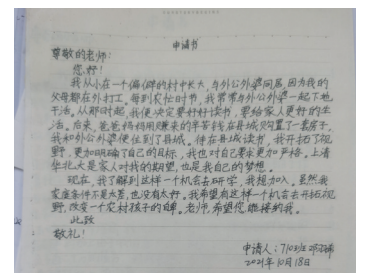 申请书
尊敬的老师：
您好！
我从小在一个偏僻的村中长大，与外公外婆同居，因为我的
父母都在外打工。每到农忙时节，我常常与外公外婆一起下地
干活。从那时起，我便决定要好好读书，要给家人更好的生
活。后来，爸爸妈妈用赚来的辛苦钱在县城购置了一套房子，
我和外公外婆便住到了县城。待在县城读书，我开拓了视
野，更加明确了自己的目标，我也对自己要求更加严格。上清
华北大是家人对我的期望，也是我自己的梦想。
现在，我了解到这样一个机会去研学，我想加入。虽然我
家庭条件不是太差，也没有太好。我希望有这样一个机会去开拓视
野，改变一个农村孩子的命。老师，希望您能接纳我。
此致
敬礼！
申请人：710班
2021年10月18日